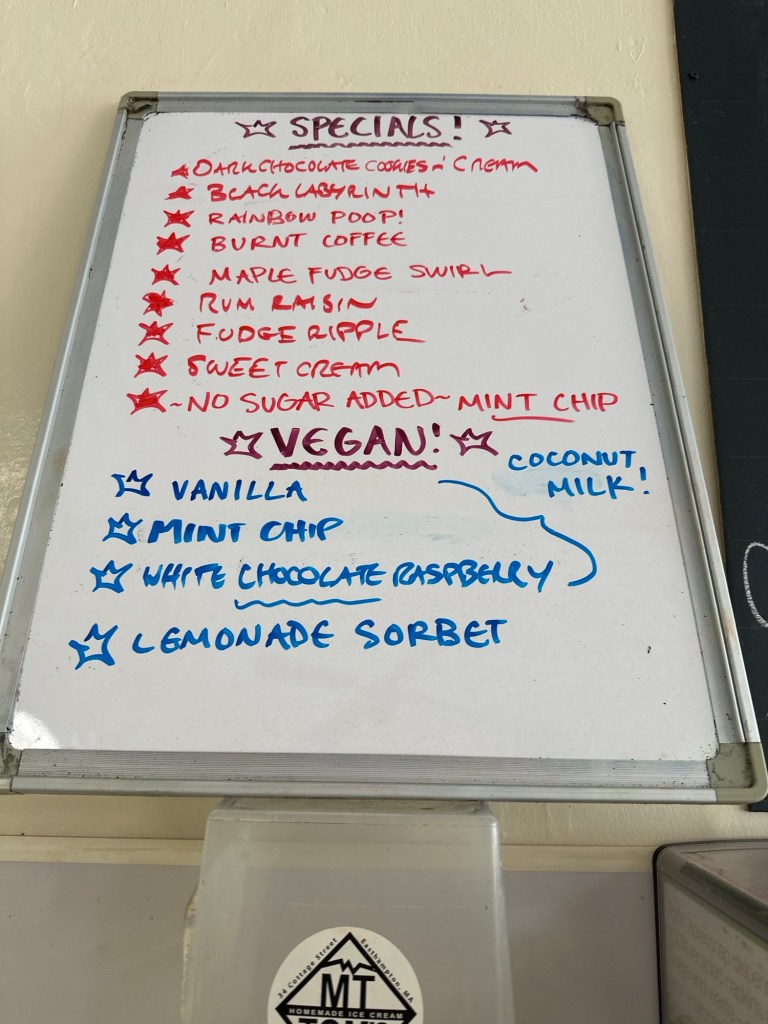 SPECIALS!
DARK CHOCOLATE COOKIES n' CREAM
BLACK LABYRINTH
RAINBOW POOP!
BURNT COFFEE
MAPLE FUDGE SWIRL
RUM RAISIN
FUDGE RIPPLE
SWEET CREAM
~NO SUGAR ADDED~ MINT CHIP
VEGAN!
COCONUT
MILK!
VANILLA
MINT CHIP
WHITE CHOCOLATE RASPBERRY
LEMONADE SORBET
34 Cottage Street Easthampton, MA
MT
HOMEMADE ICE CREAM
TOM'S